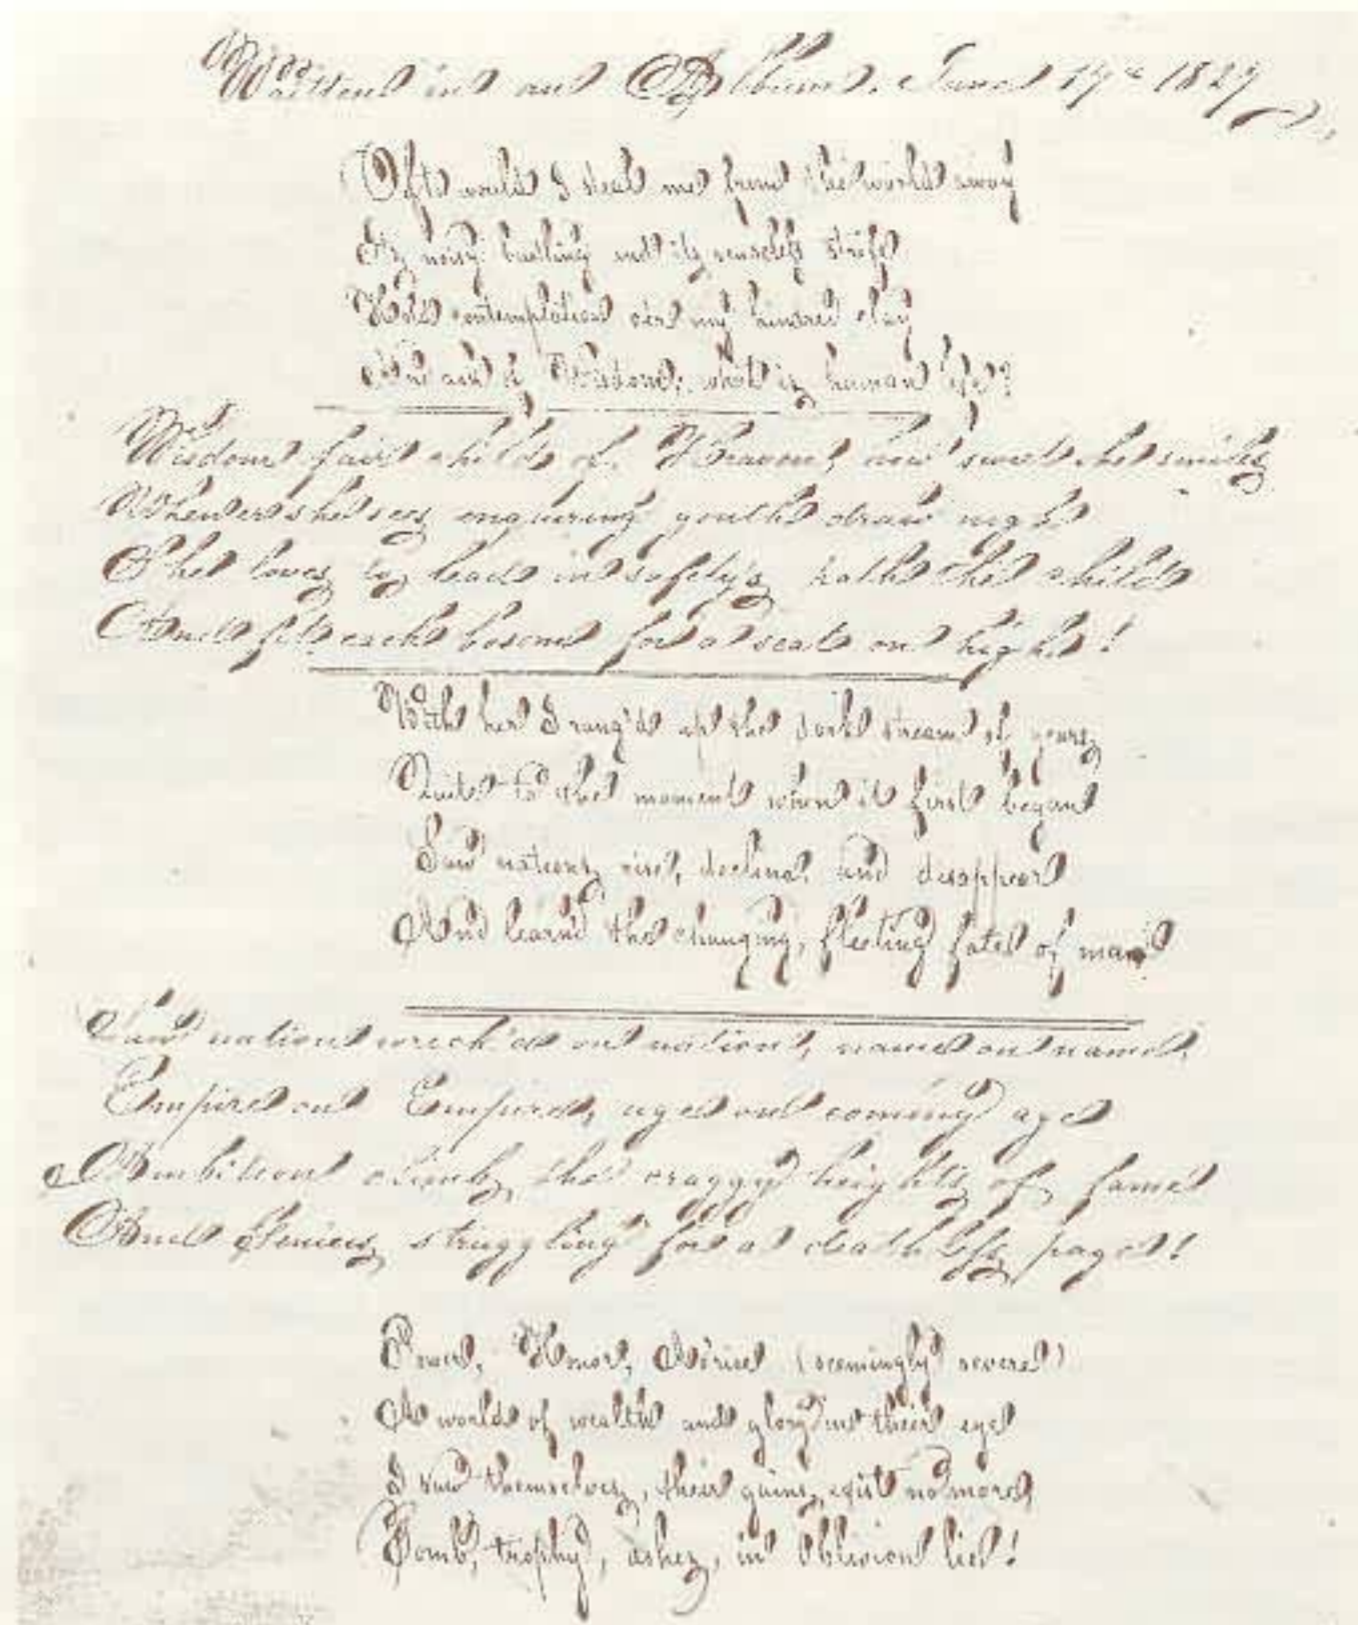 Written in an Album. June 17th 1827
Oft would I steal me from the world away
Its noisy bustling and its senseless strife
Hold contemplation o'er my kindred clay
And ask of Wisdom; what is human life?
Wisdom fair child of Heaven, how sweet she smiles
Whene'er she sees enquiring youth draw nigh
She loves to lead in safety's path the child
And fit each bosom for a seat on high!
With her I rang'd up the dark stream of years
Quite to the moment when it first began
Saw nations rise, decline, and disappear
And learn'd the changing, fleeting fate of man
Saw nation wreck'd on nation, name on name,
Empire on Empire, age on coming age
Ambition climb the craggy heights of fame
And Genius struggling for a deathless page!
Power, Honor, (seemingly revere)
A world of wealth and glory in their eye
I saw themselves, their gains, exist no more,
Tomb, trophy, ashes, in oblivion lie!